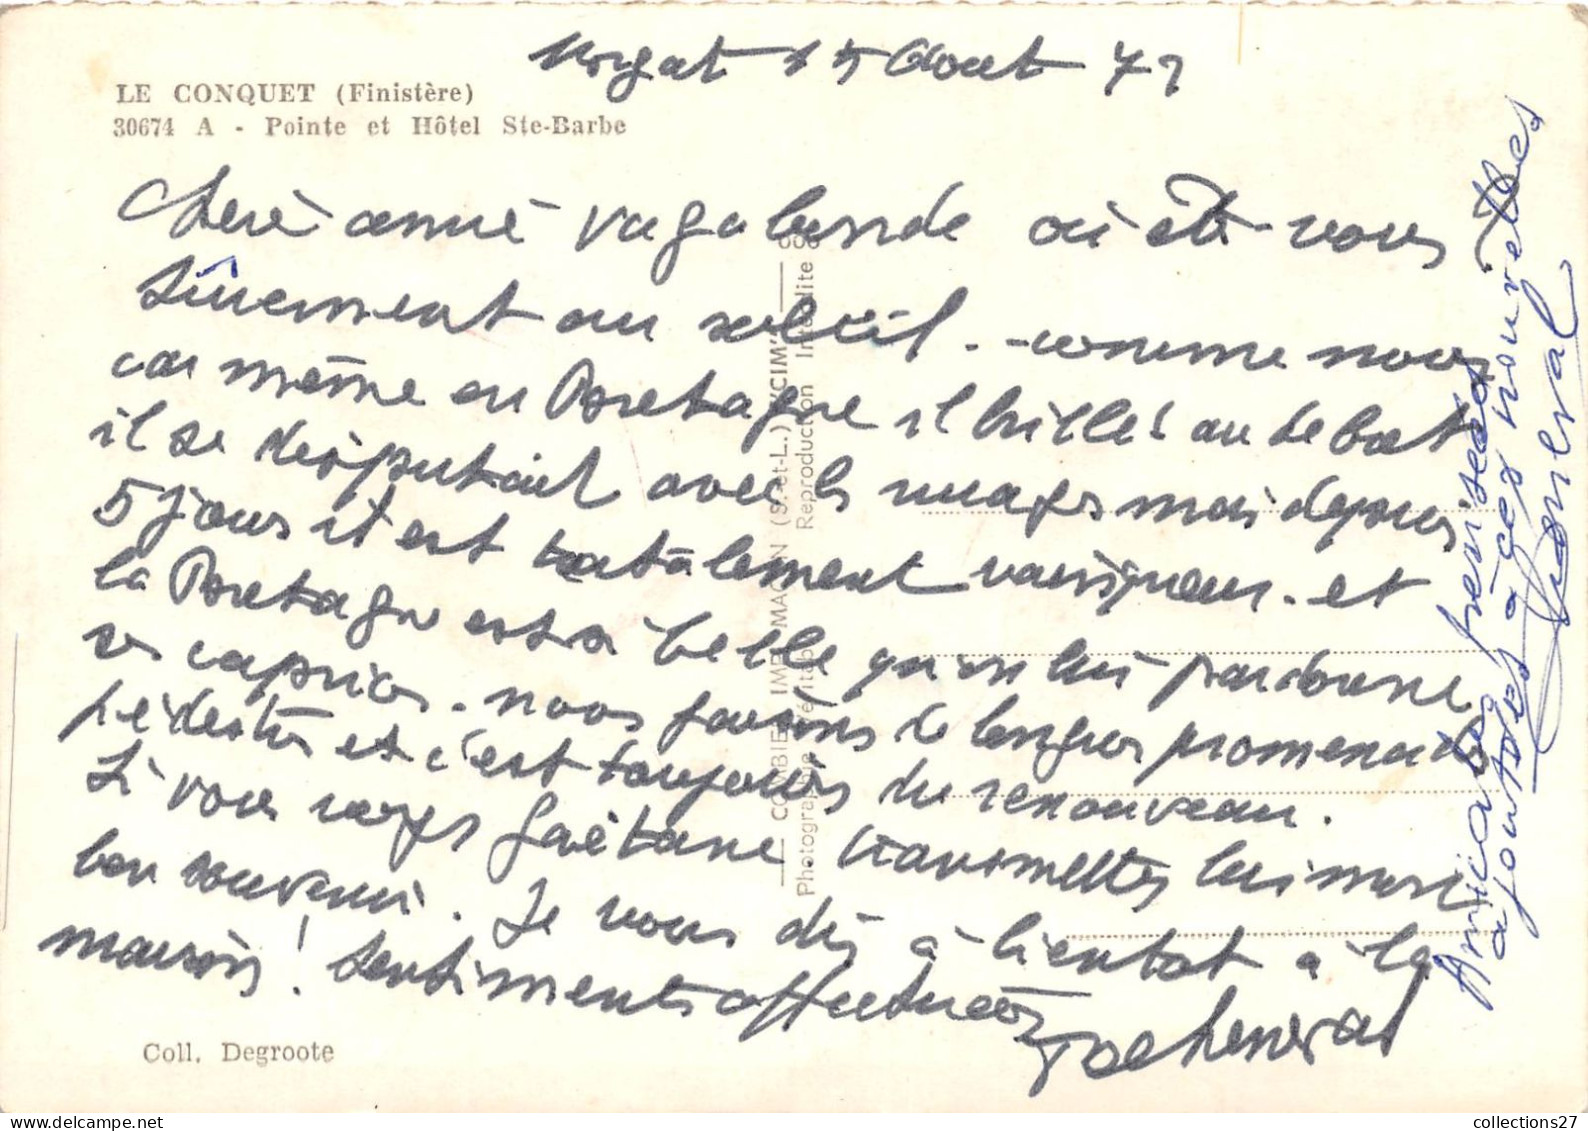 Morgat 15 Aout 71
LE CONQUET (Finistère)
30674 A - Pointe et Hôtel Ste-Barbe
Chère amie vagabonde où êtes-vous
sûrement au soleil. - comme nous
car même en Bretagne il brille! au debut
il se disputait avec les nuages mais depuis
5 jours il est totalement vainqueur. et
la Bretagne est si belle qu'on lui pardonne
ses caprices. nous faisons de longues promenades
pédestres et c'est toujours du renouveau.
Si vous voyez Gaëtane transmettez lui mon
bon souvenir. Je vous dis à bientot à la
maison! Sentiments affectueux
Amicales pensées
ajoutées à ces nouvelles
COMBIER IMP. MACON (S.-et-L.) "CIM"
Photographie Véritable Reproduction Interdite
Coll. Degroote
collections27